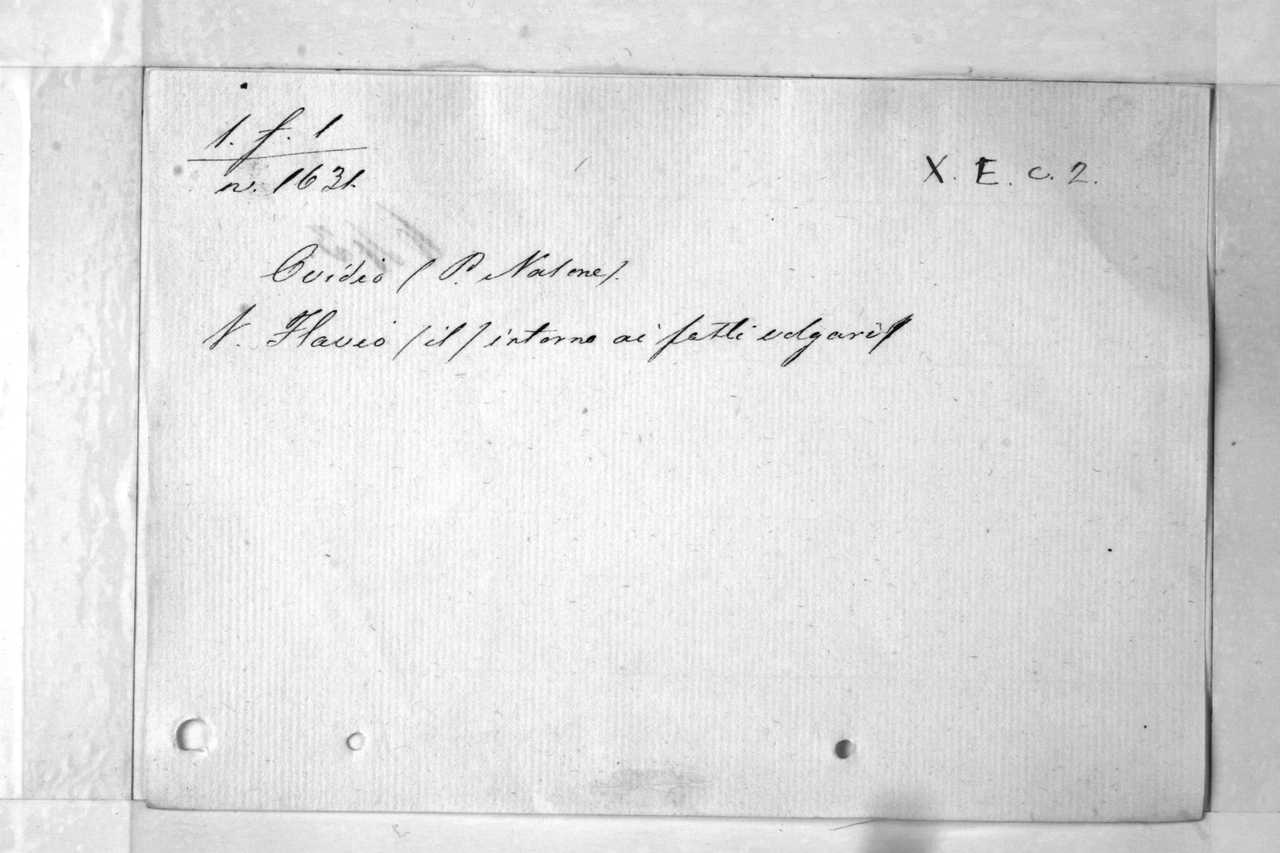 1. f. 1
n. 1631.
X. E. c. 2.
Ovidio (P. Nasone).
V. Flavio (il) intorno ai fasti volgari